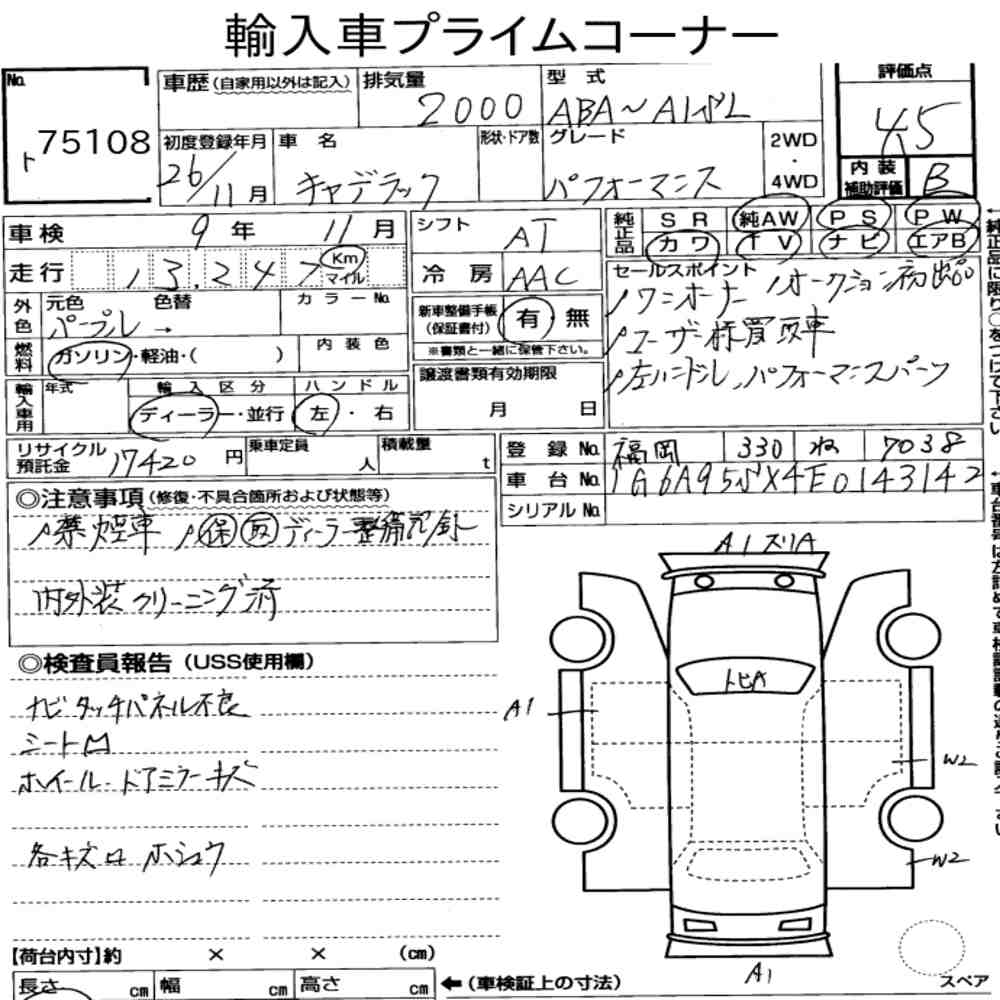 輸入車プライムコーナー
No.
ト 75108
車歴 (自家用以外は記入)
排気量 2000
型式 ABA〜A1
評価点 4.5
初度登録年月 26/11月
車名 キャデラック
形状・ドア数
グレード パフォーマンス
2WD・4WD
内装補助評価 B
車検 9年 11月
シフト AT
純正品 SR 純AW PS PW
カワ TV ナビ エアB
走行 13,247 Km マイル
冷房 AAC
セールスポイント
ワンオーナー オークション初出品
ユーザー様買取車
左ハンドル パフォーマンスパーツ
外色 元色 パープル → 色替 カラーNo.
新車整備手帳(保証書付) 有・無
※書類と一緒に保管下さい。
燃料 ガソリン・軽油・( )
内装色
譲渡書類有効期限
月 日
輸入車用 年式
輸入区分 ディーラー・並行
ハンドル 左・右
リサイクル預託金 17420円
乗車定員 人
積載量 t
登録No. 福岡 330 ね 7038
車台No. 1G6A95SX4E0143142
シリアルNo.
◎注意事項 (修復・不具合箇所および状態等)
禁煙車 保 取 ディーラー整備記録
内外装クリーニング済
◎検査員報告 (USS使用欄)
ナビタッチパネル不良
シート凹
ホイール・ドアミラーキズ
各キズロ ホシュウ
A1 スリA
トビA
A1
W2
W2
A1
スペア
【荷台内寸】約 × × (cm)
長さ cm 幅 cm 高さ cm
←(車検証上の寸法)